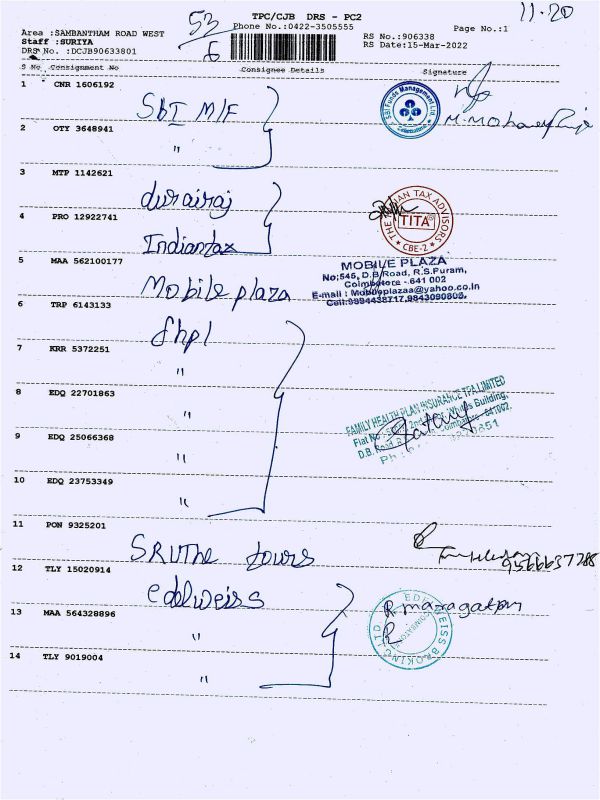 53
6
11.20
TPC/CJB DRS - PC2
Phone No.:0422-3505555
Page No.:1
Area :SAMBANTHAM ROAD WEST
Staff :SURIYA
DRS No. :DCJB90633801
RS No.:906338
RS Date:15-Mar-2022
S No Consignment No Consignee Details Signature
1 CNR 1606192
SbI M/F
SBI Funds Management
Coimbatore
2 OTY 3648941
"
3 MTP 1142621
durairaj
4 PRO 12922741
Indiantax
THE INDIAN TAX ADVISORS
TITA
CBE-2
5 MAA 562100177
Mobile plaza
MOBILE PLAZA
No;545, D.B.Road, R.S.Puram,
Coimbatore - 641 002
E-mail : Mobileplazaa@yahoo.co.in
Cell:9894438717,9843090809.
6 TRP 6143133
fhpl
7 KRR 5372251
"
8 EDQ 22701863
"
FAMILY HEALTH PLAN INSURANCE TPA LIMITED
Flat No 2nd Building,
D.B. Road, Coimbatore - 641002.
9 EDQ 25066368
"
10 EDQ 23753349
"
11 PON 9325201
SRUThe tours
9566637288
12 TLY 15020914
edelweiss
13 MAA 564328896
"
EDELWEISS BROKING LTD
COIMBATORE
R
14 TLY 9019004
"